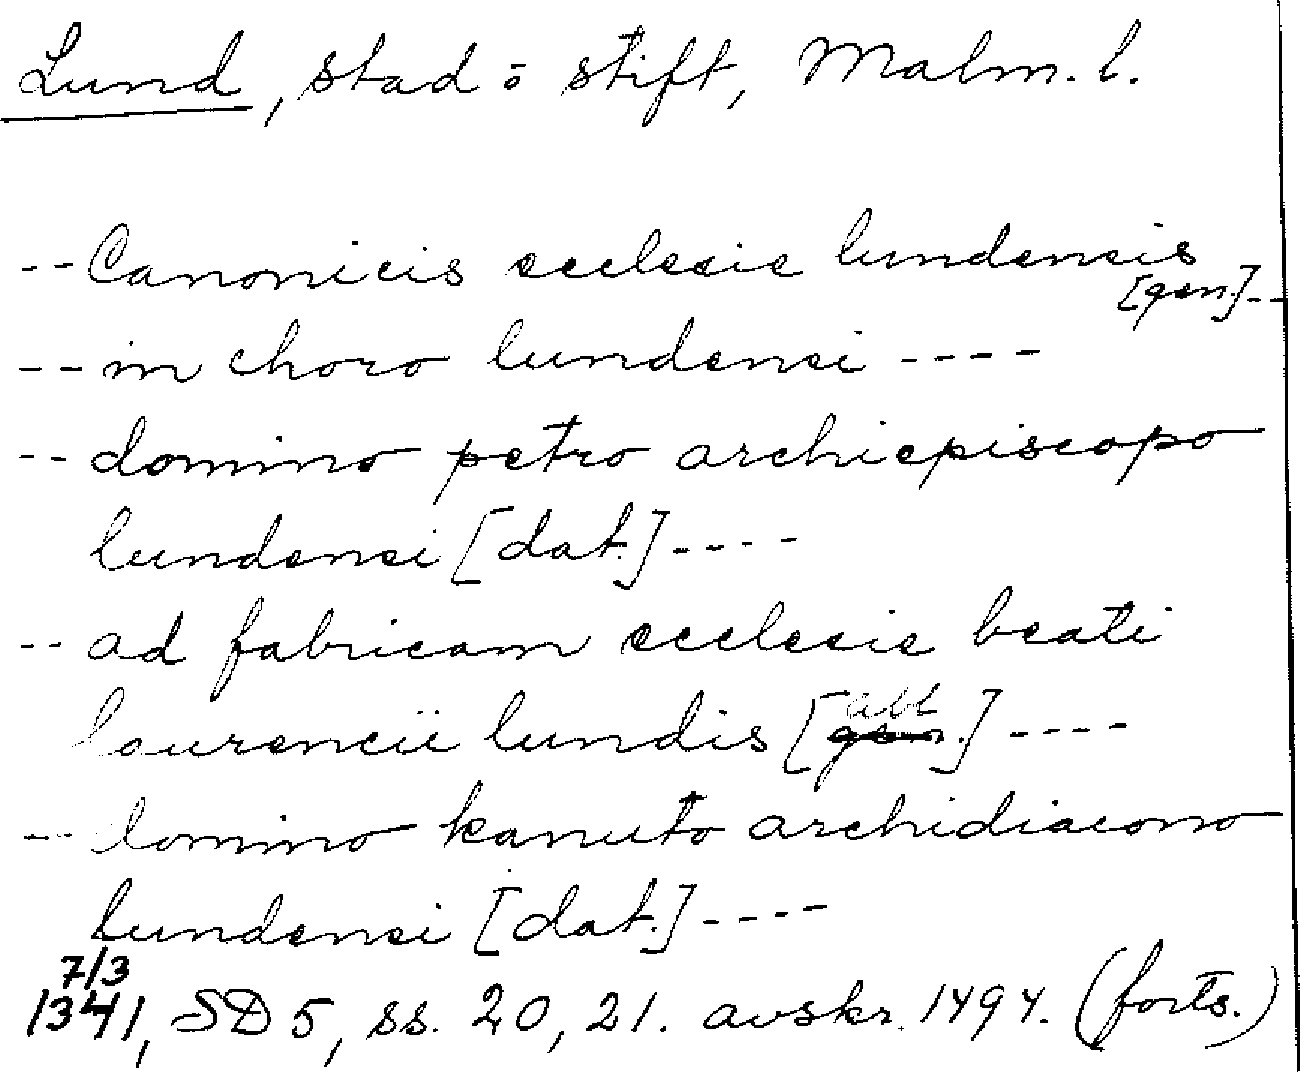 Lund, stad o stift, Malm. l.
-- Canonicis ecclesie lundensis
[gen.]--
-- in choro lundensi ----
-- domino petro archiepiscopo
lundensi [dat.] ----
-- ad fabricam ecclesie beati
laurencii lundis [gen. abl] ----
-- domino kanuto archidiacono
lundensi [dat.] ----
7/3
1341, SD 5, ss. 20, 21. avskr. 1494. (forts.)